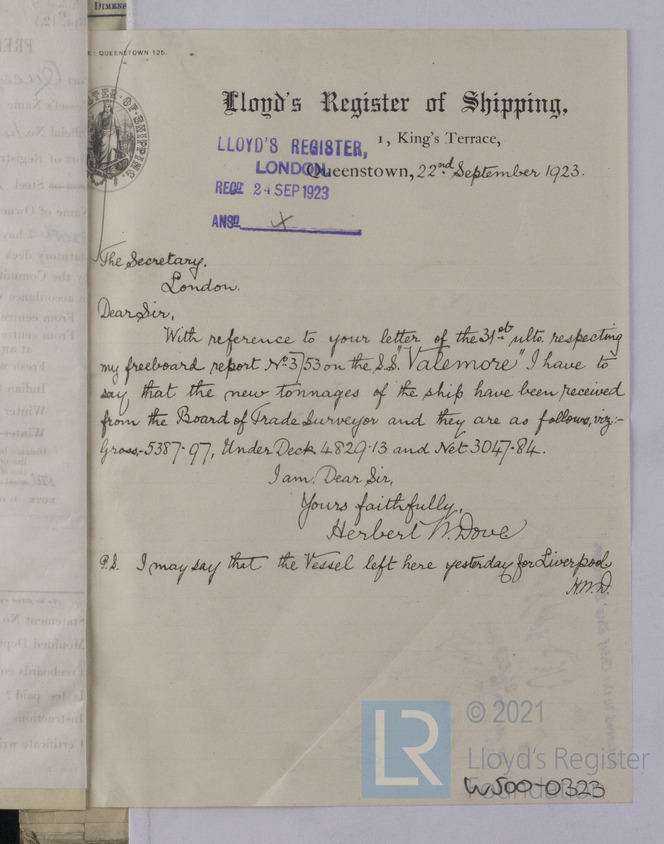 DIMENS
E: QUEENSTOWN 125.
Lloyd's Register of Shipping,
1, King's Terrace,
LLOYD'S REGISTER,
LONDON
Queenstown, 22nd September 1923.
RECD 24 SEP 1923
ANSD X
The Secretary.
London.
Dear Sir,
With reference to your letter of the 31st ulto. respecting
my freeboard report No 3753 on the S.S. "Valemore" I have to
say that the new tonnages of the ship have been received
from the Board of Trade Surveyor and they are as follows, viz:-
Gross-5387.97, Under Deck 4829.13 and Net 3047.84.
I am, Dear Sir,
Yours faithfully,
Herbert W. Dove
P.S. I may say that the Vessel left here yesterday for Liverpool
H.W.D.
LR
© 2021
Lloyd's Register
Foundation
W500-0323